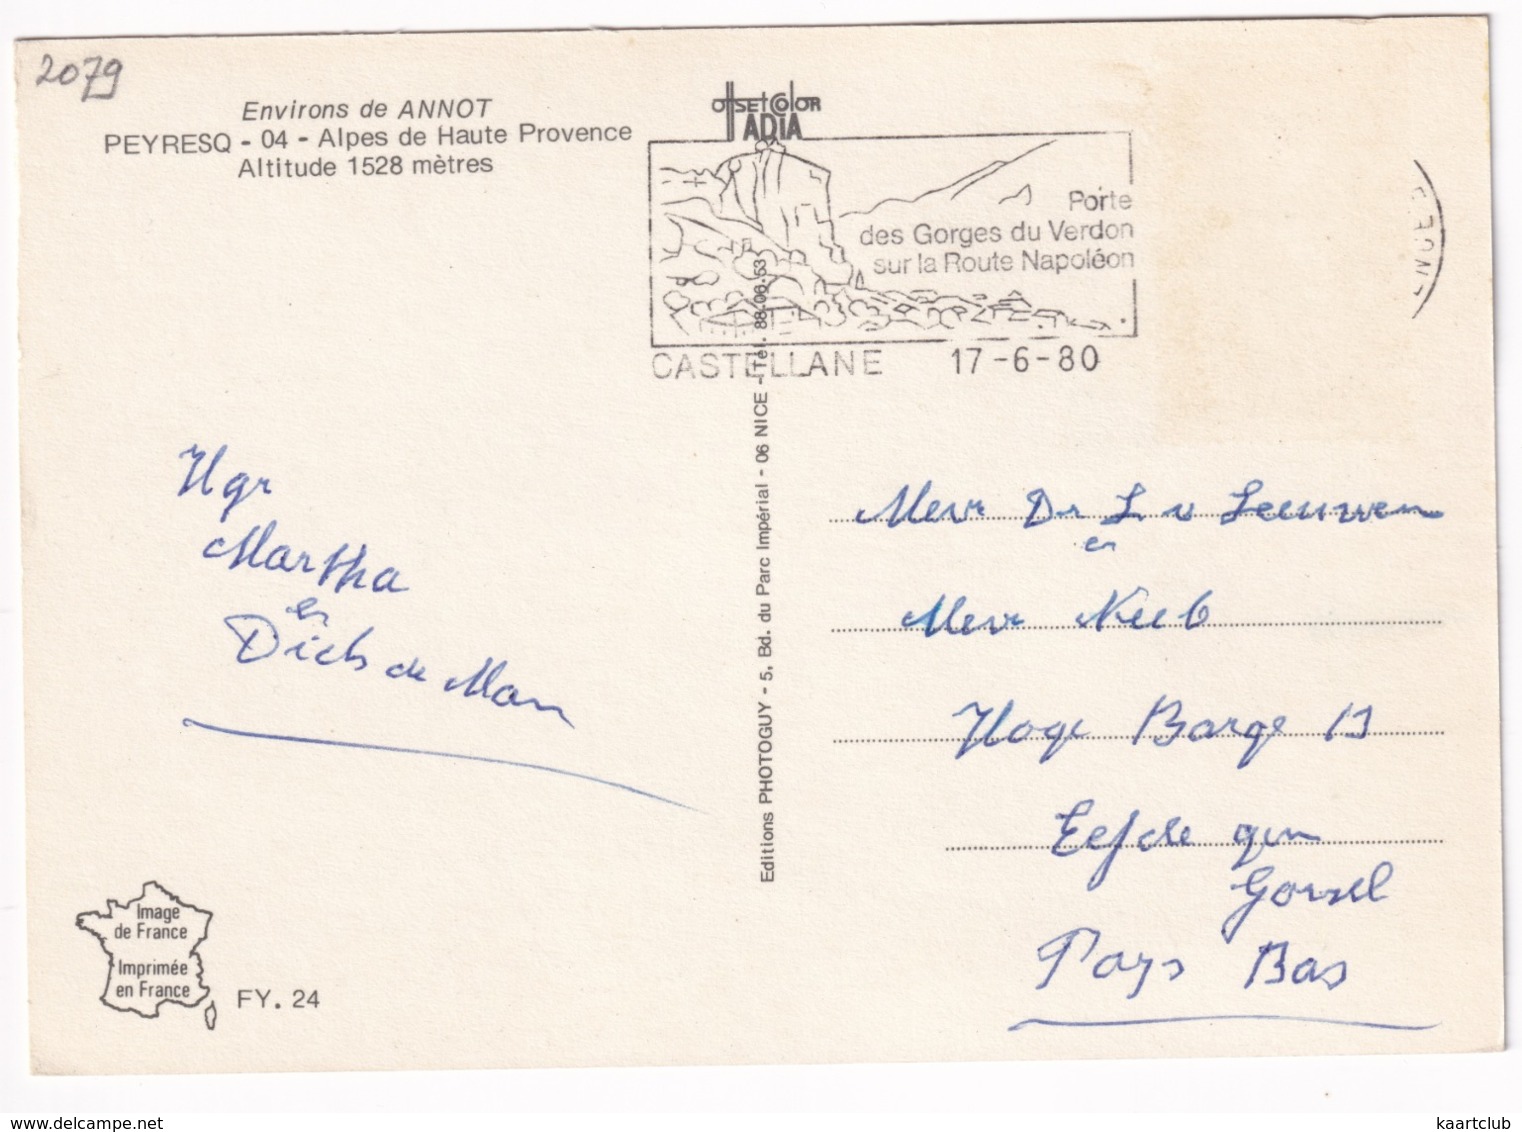 2079
Environs de ANNOT
PEYRESQ - 04 - Alpes de Haute Provence
Altitude 1528 mètres
OffSEt COlOR
ADIA
Porte
des Gorges du Verdon
sur la Route Napoléon
CASTELLANE 17-6-80
Editions PHOTOGUY - 5, Bd. du Parc Impérial - 06 NICE - Tél. 88.06.53
Hgr
Martha
en
Dick de Man
Mevr Dr L v Leeuwen
en
Mevr
Hoge Barge
Eefde gem
Gorssel
Pays Bas
Image
de France
Imprimée
en France
FY. 24
www.delcampe.net
kaartclub